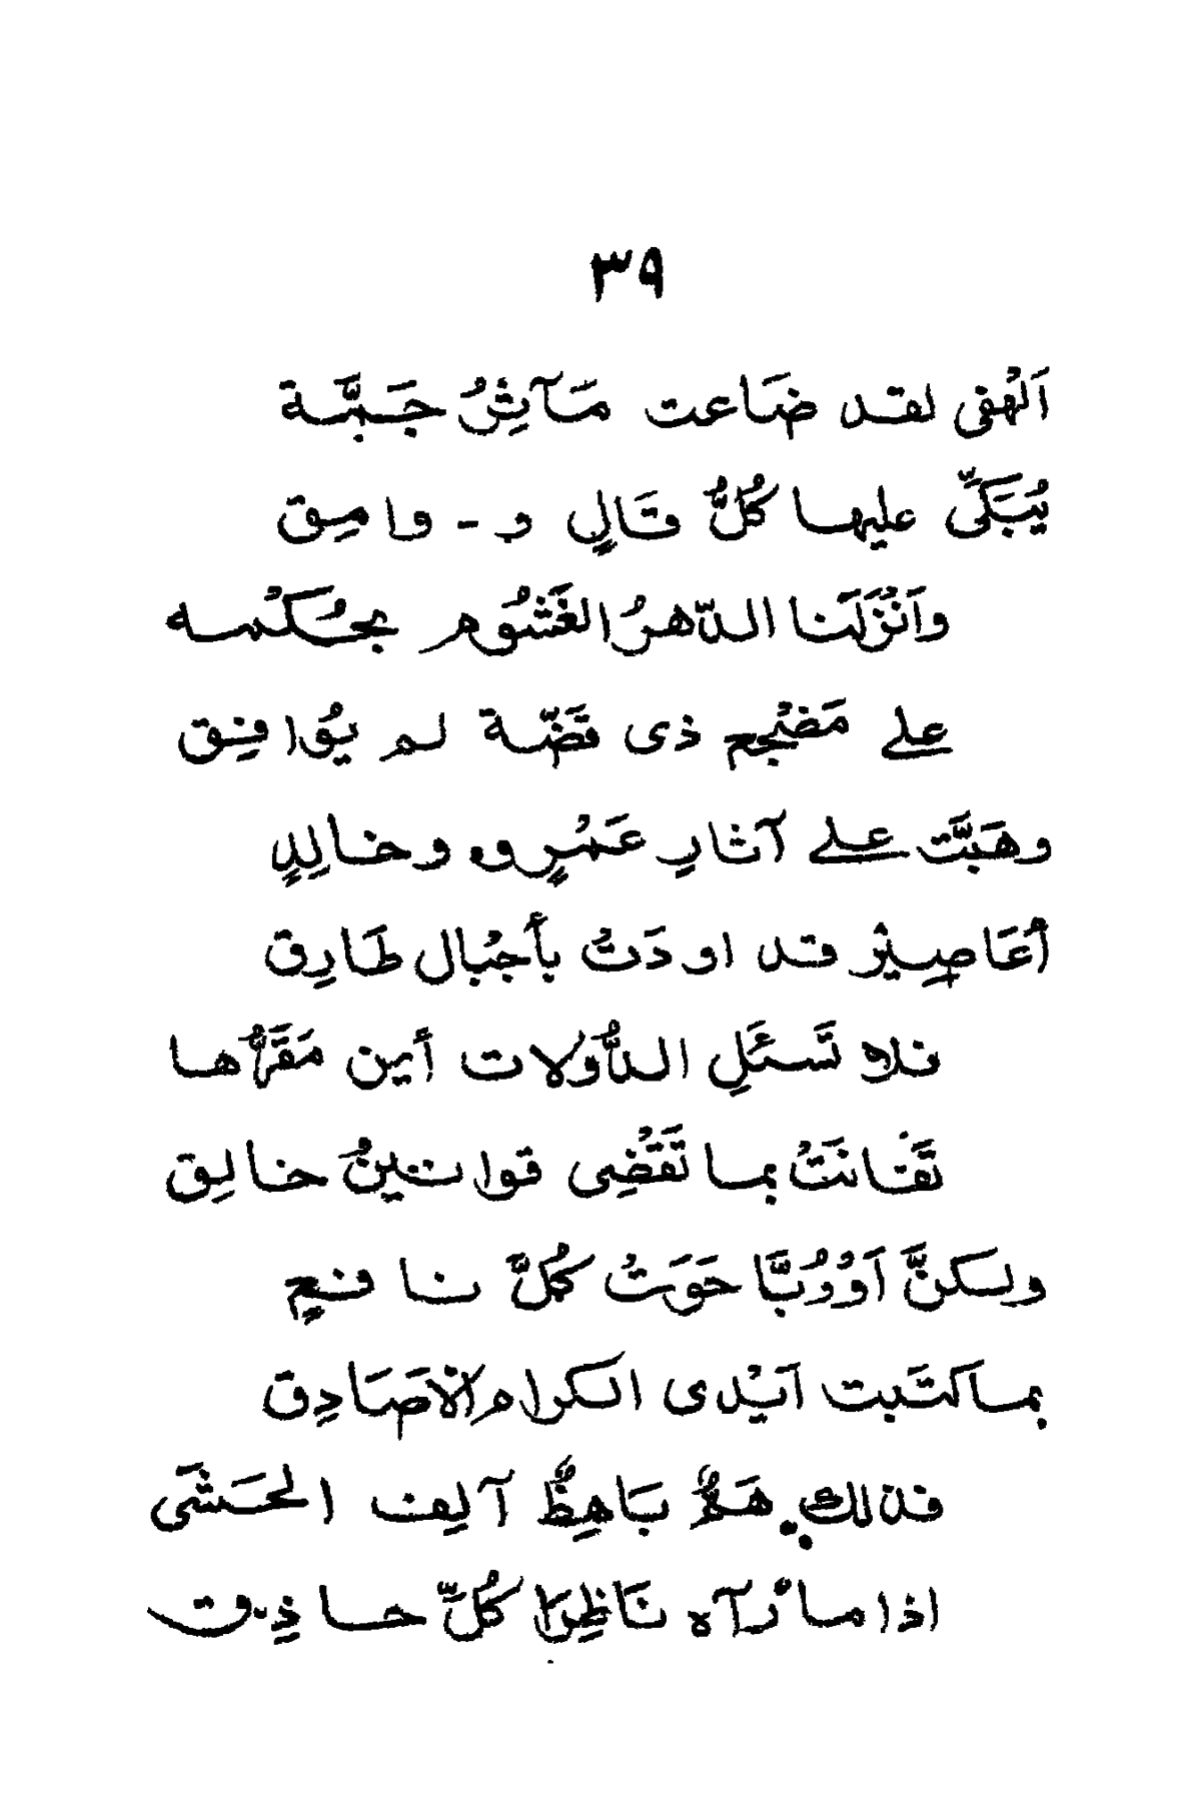 ٣٩
اَلْهفى لقد ضَاعت مَآثِرُ جَمَّة
يُبَكِّى عليها كُلُّ قَالٍ و - وامِق
وَاَنْزَلَنا الدّهرُ الغَشُوم بحُكْمه
على مَضْجع ذى قَضّة لم يُوافِق
وهَبَّت على آثارِ عَمْرٍو وخالِدٍ
أعَاصِيرُ قد اودَتْ بأجْبال طَارِق
فلا تَسئَلِ الدُّولات أين مَقَرُّها
تَفَانَتْ بما تَقْضِى قوانينُ خالِق
ولكنَّ اَوْرُبَّا حَوَتْ كُلَّ نافعٍ
بما كَتَبت اَيْدى الكرام الاَصَادِق
فذلك هَمٌّ بَاهِظٌ آلِف الحَشَى
اذا ما رآه نَاظِرًا كُلِّ حاذِق